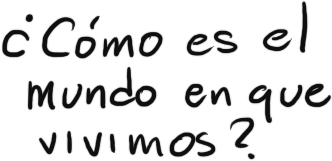 ¿Cómo es el
mundo en que
vivimos?